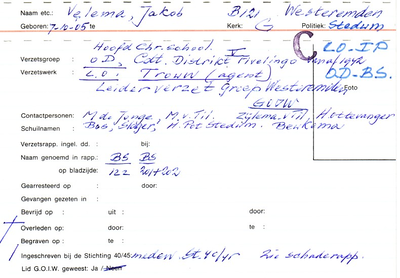 Naam etc.: Velema, Jakob B121 Westeremden
Geboren: 7-10-05 te Kerk: G Politiek: Stedum
Hoofd Chr. school. V C LO-IP
Verzetsgroep : O.D., Cdt. Distrikt Fivelingo vanaf 1942 OD-BS.
Verzetswerk : L.O. Trouw (agent)
Leider verzet Groep Westeremden, Foto
GOIW
Contactpersonen: M. de Jonge, M. v. Til. Zijlema, v. Til, Hotteranger
Schuilnamen : Bos, Slager, H. Pot Stedum. Beukema
Verzetsrapp. ingel. dd. : bij:
Naam genoemd in rapp.: BS BS
op bladzijde: 122 201+202
Gearresteerd op : door:
Gevangen gezeten in :
Bevrijd op : uit : door:
Overleden op: : door: te :
Begraven op : te :
Ingeschreven bij de Stichting 40/45: medew. St. 40/45 Zie schaderapp.
Lid G.O.I.W. geweest: Ja / Neen